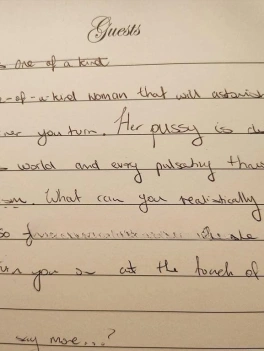 Guests
one of a kind
-of-a-kind woman that will astonish
you turn. Her pussy is
world and every pulsating
What can you realistically
so
you at the touch of
say more...?